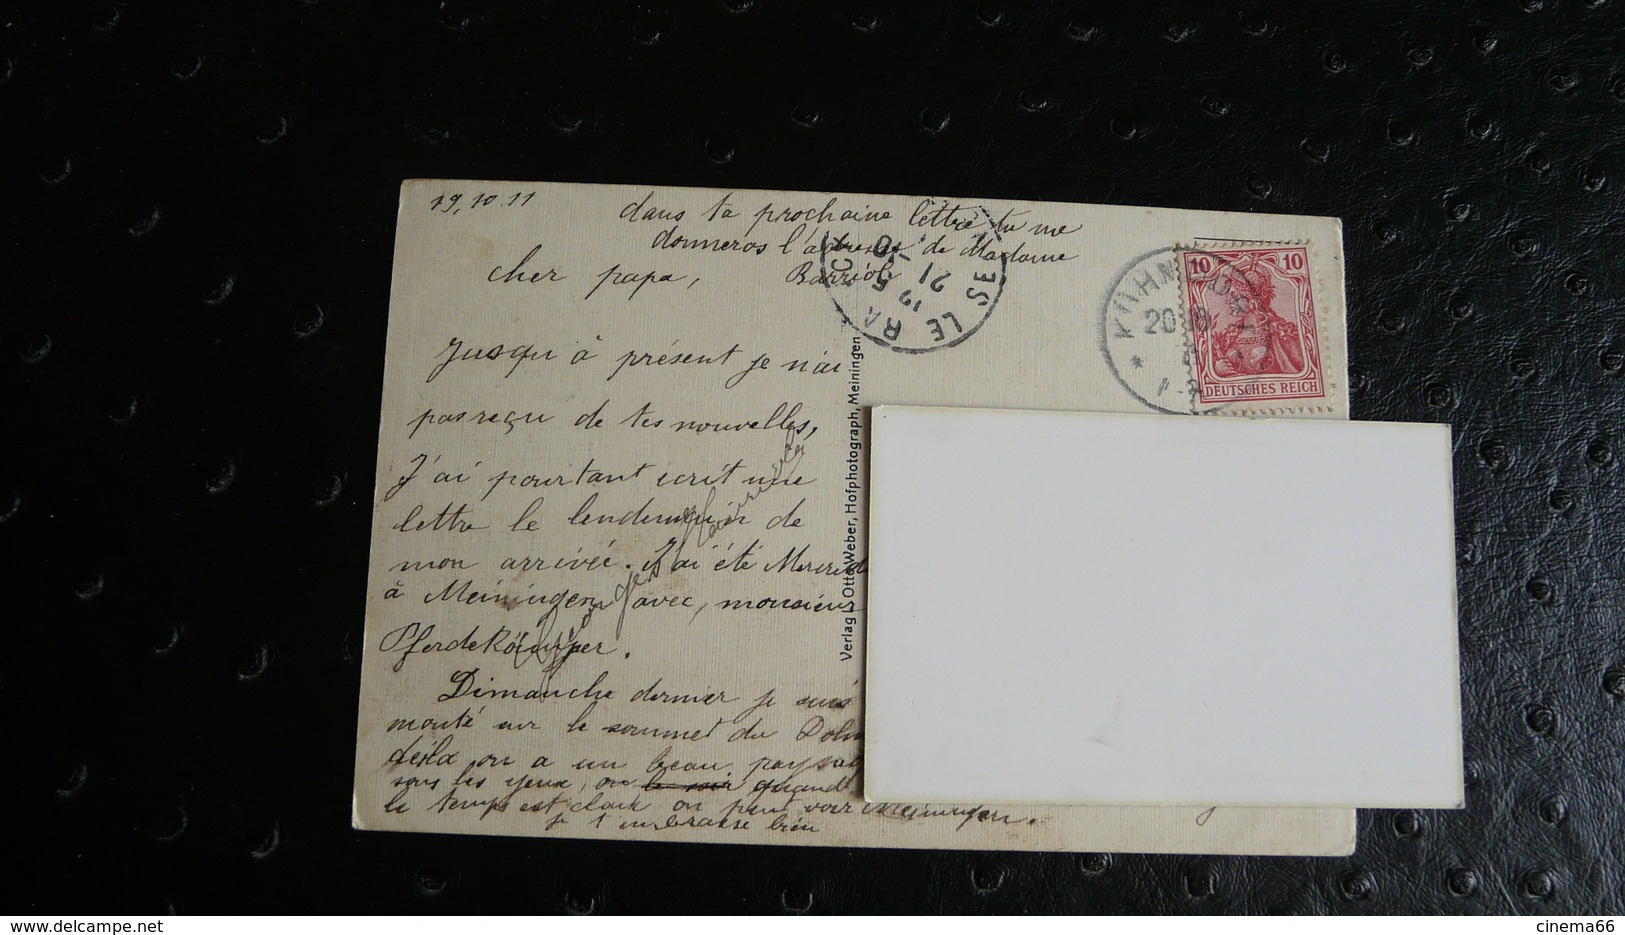 19.10.11
dans ta prochaine lettre tu me
donneras l'adresse de Madame
Barriol
cher papa,
Jusqu'à présent je n'ai
pas reçu de tes nouvelles,
J'ai pourtant écrit une
lettre le lendemain de
mon arrivée. J'ai été Mercredi
à Meiningen avec, monsieur
Pferdekämper.
Dimanche dernier je suis
monté sur le sommet du Dolm
de là on a un beau paysag
sous les yeux, on le voir quand
le temps est clair on peut voir Meiningen.
je t'embrasse bien
Verlag L. Otto Weber, Hofphotograph, Meiningen
SE LE RA
21 -10
10
10
DEUTSCHES REICH
20
cinema66